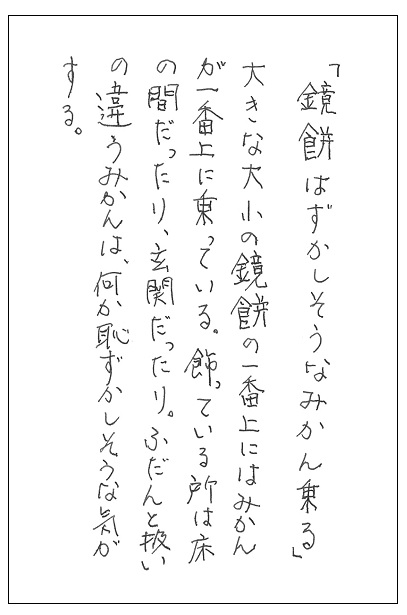 「鏡餅はずかしそうなみかん乗る」
大きな大小の鏡餅の一番上にはみかん
が一番上に乗っている。飾っている所は床
の間だったり、玄関だったり。ふだんと扱い
の違うみかんは、何か恥ずかしそうな気が
する。